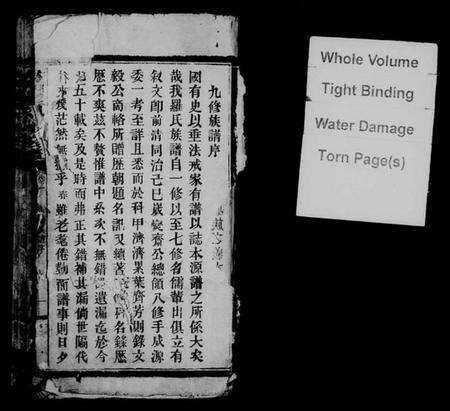 九修族譜序
國有史以垂法戒家有譜以誌本源譜之所係大矣
哉我羅氏族譜自一修以至七修名儒輩出俱立有
叙文卽前清同治己巳歲變齋公總領八修手成源
委一考至詳且悉而於科甲濟濟果葉齊芳則錄文
毅公南畧所贈歷朝題名記又續著 科名錄應
歷不爽茲不贅惟譜中系次不無錯 遺漏迄於今
五十載矣及是時而弗正其錯補其漏倘世隔代
茫然無 乎 雖老耄倦勤而譜事則日夕
Whole Volume
Tight Binding
Water Damage
Torn Page(s)